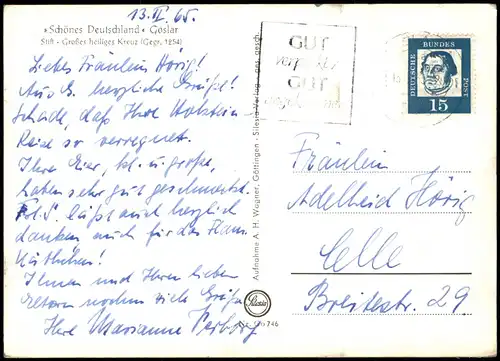 13.II.65.
»Schönes Deutschland« Goslar
Stift - Großes heiliges Kreuz (Gegr. 1254)
Liebes Fräulein Hörig!
Aus G. herzliche Grüße!
Schade, daß Ihre Holstein
Reise so verregnet.
Ihre Eier, kl. u. große,
haben sehr gut geschmeckt.
läßt auch herzlich
danken auch für das
Ihnen und Ihren lieben
Eltern nochm. viele Grüße
Ihre Marianne
Aufnahme A. H. Wagner, Göttingen - Silesia Verlag - ges. gesch.
Silesia
746
GUT
GUT
DEUTSCHE BUNDESPOST
15
Fräulein
Adelheid Hörig
Celle
Breitestr. 29